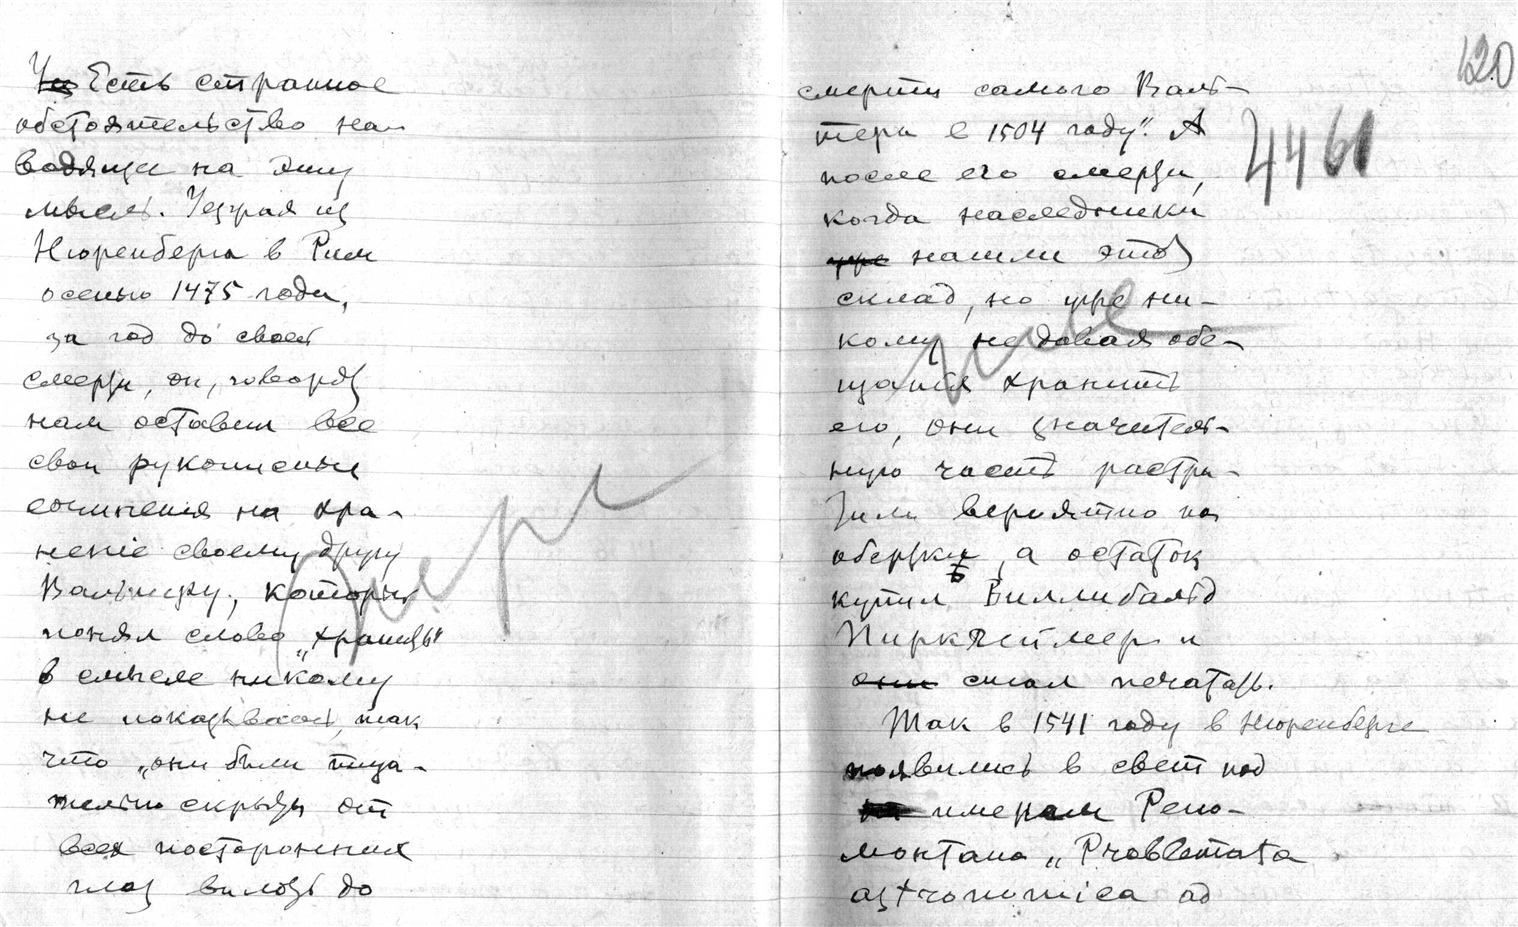 Есть странное
обстоятельство на-
водящее на эту
мысль. Уезжая из
Нюренберга в Рим
осенью 1475 года,
за год до своей
смерти, он, говорят
нам оставил все
свои рукописные
сочинения на хра-
нение своему другу
Вальтеру, который
понял слово „хранить"
в смысле никому
не показывать, так
что „они были тща-
тельно скрыты от
всех посторонних
глаз вплоть до
120
смерти самого Валь-
тера в 1504 году". А
4461
после его смерти,
когда наследники
уже нашли этот
склад, но уже ни-
кому не давая обе-
щания хранить
его, они значитель-
ную часть растра-
тили вероятно на
обертки, а остаток
купил Виллибальд
Пиркгеймер и
они стал печатать.
Так в 1541 году в Нюренберге
появились в свет под
именем Регио-
монтана „Problemata
astronomica ad